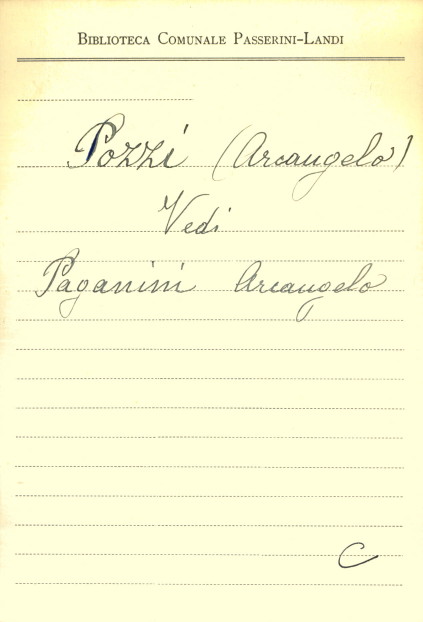 BIBLIOTECA COMUNALE PASSERINI-LANDI
Pozzi (Arcangelo)
Vedi
Paganini Arcangelo
C